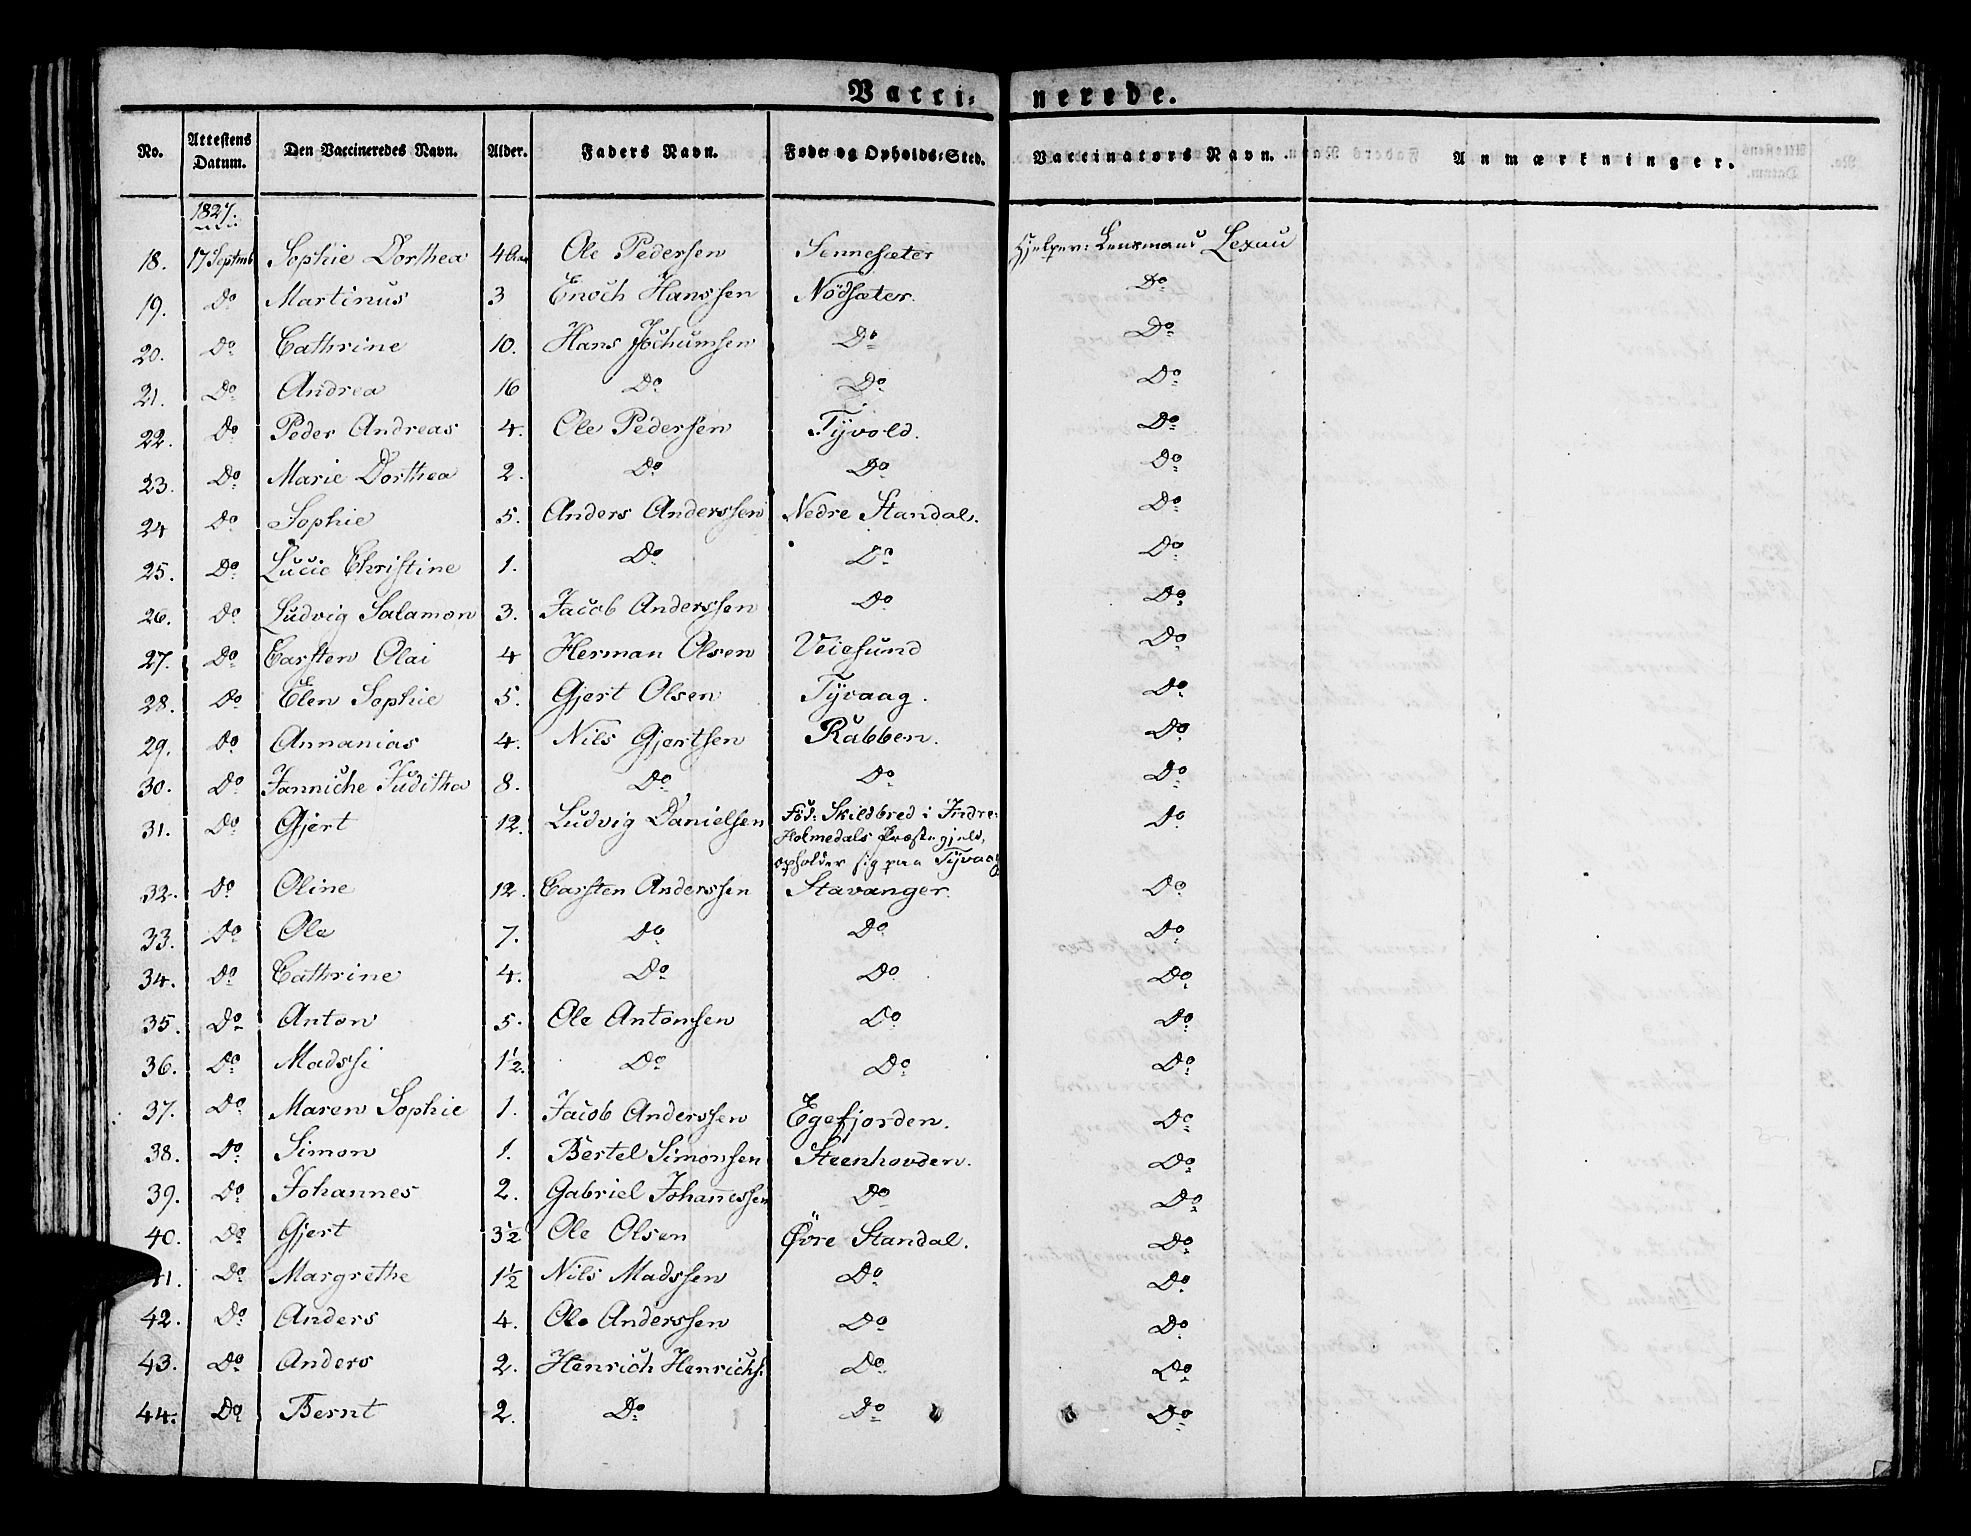 Vacci- nerede.
No. Attestens Datum. Den Vaccineredes Navn. Alder. Faders Navn. Føde- og Opholds-Sted. Vaccinators Navn. Anmærkninger.
1827.
18. 17 Septmb Sophie Dorthea 4 Aar Ole Pedersen Sennesæter Hjelpev: Lensmand Lexau
19. Do Martinus 3 Enoch Hanssen Nödsæter. Do
20. Do Cathrine 10. Hans Jochumsen Do Do
21. Do Andrea 16 Do Do Do
22. Do Peder Andreas 4. Ole Pedersen Tÿvold. Do
23. Do Marie Dorthea 2. Do Do Do
24 Do Sophie 5. Anders Anderssen Nedre Standal. Do
25. Do Lucie Christine 1. Do Do Do
26. Do Ludvig Salamon 3. Jacob Anderssen Do Do
27. Do Carsten Olai 4 Herman Olsen Veiesund Do
28. Do Elen Sophie 5. Gjert Olsen Tÿvaag. Do
29. Do Annanias 4. Nils Gjertsen Rabben. Do
30. Do Janniche Juditha 8. Do Do Do
31. Do Gjert 12. Ludvig Danielsen Föd: Skildbred i Indre- Do
Holmedals Præstegjeld,
opholder sig paa Tÿvaag
32. Do Oline 12. Carsten Anderssen Stavanger. Do
33. Do Ole 7. Do Do Do
34. Do Cathrine 4. Do Do Do
35. Do Anton 5. Ole Antonsen Do Do
36. Do Madssi 1½. Do Do Do
37. Do Maren Sophie 1. Jacob Anderssen Egefjorden. Do
38. Do Simon 1. Bertel Simonsen Steenhovden. Do
39. Do Johannes 2. Gabriel Johanessen Do Do
40. Do Gjert 3½ Ole Olsen Øvre Standal. Do
41. Do Margrethe 1½ Nils Madssen Do Do
42. Do Anders 4. Ole Anderssen Do Do
43. Do Anders 2. Henrich Henrichs: Do Do
44. Do Bernt 2. Do Do Do